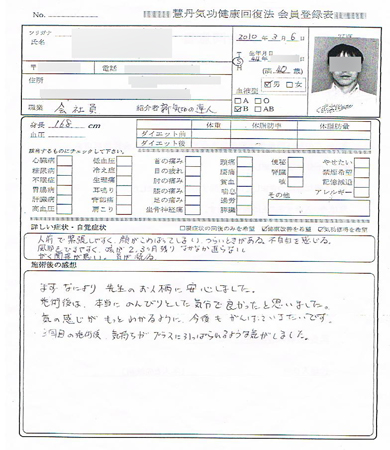 No.
慧丹気功健康回復法 会員登録表
フリガナ
氏名
2010年 3月 6日
生年月日
〒
電話
(満 40 歳)
住所
☑男 □女
血液型
□A □O
☑B □AB
職業 会社員
紹介者
身長 168 cm
体重 体脂肪率 体脂肪量
血圧
ダイエット前
ダイエット後
該当するものにチェックして下さい。
心臓病 低血圧 首の痛み 頭痛 便秘 やせたい
糖尿病 冷え症 目の疲れ 腰痛 腎臓 禁煙希望
不眠症 生理痛 肘の痛み 貧血 咳 記憶減退
胃腸病 耳鳴り 膝の痛み 喘息 その他 アレルギー
肝臓病 腎臓病 足の痛み 通労
高血圧 肩こり 坐骨神経痛 膵臓
詳しい症状・自覚症状
人前で緊張しやすく、顔がこわばってしまい、つらいときがある。不自由を感じる。
風邪もひきやすく、咳が2、3ヶ月残りなかなか直らない。
施術後の感想
まずなにより先生のお人柄に安心しました。
施術後は、本当にのんびりとした気分で良かったと思いました。
気の感じがもっとわかるように、今後もがんばっていきたいです。
二回目の施術後、気持ちがプラスに引っぱられるような感がしました。